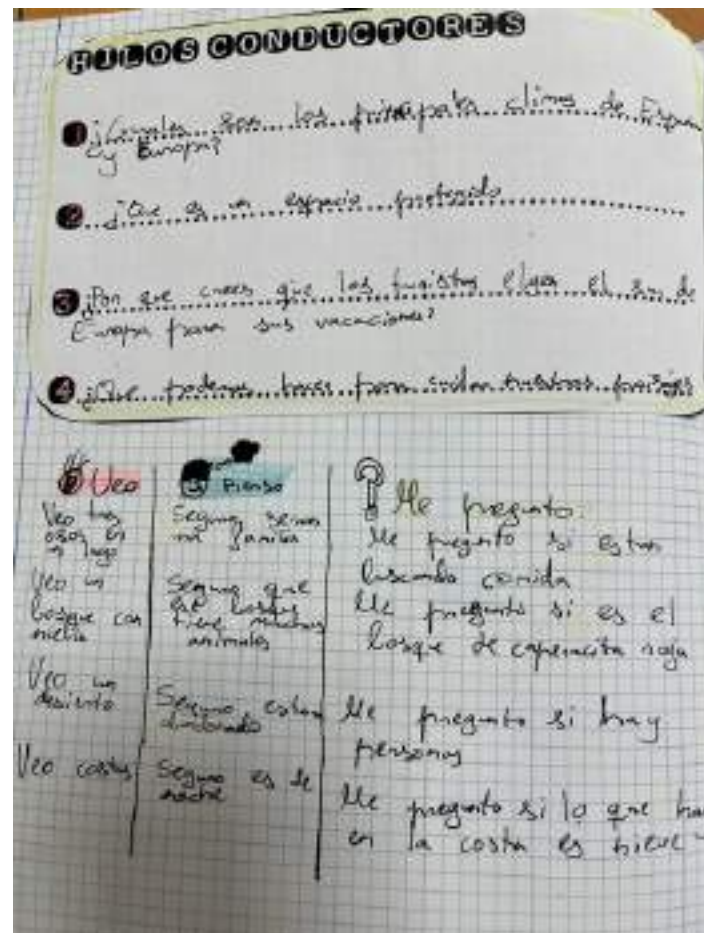 HILOS CONDUCTORES
1 ¿Cuales son los principales climas de España
y Europa?
2 ¿Que es un espacio protegido
3 ¿Por que crees que los turistas eligen el sur de
Europa para sus vacaciones?
4 ¿Que podemos hacer para cuidar nuestros paisajes
Veo
Veo tres
osos en
un lago
Veo un
bosque con
niebla
Veo un
desierto
Veo costas
Pienso
Seguro seran
una familia
Seguro que
ese bosque
tiene muchos
animales
Seguro estan
Seguro es de
noche
Me pregunto:
Me pregunto si estan
buscando comida
Me pregunto si es el
bosque de caperucita roja
Me pregunto si hay
personas
Me pregunto si lo que hay
en la costa es nieve